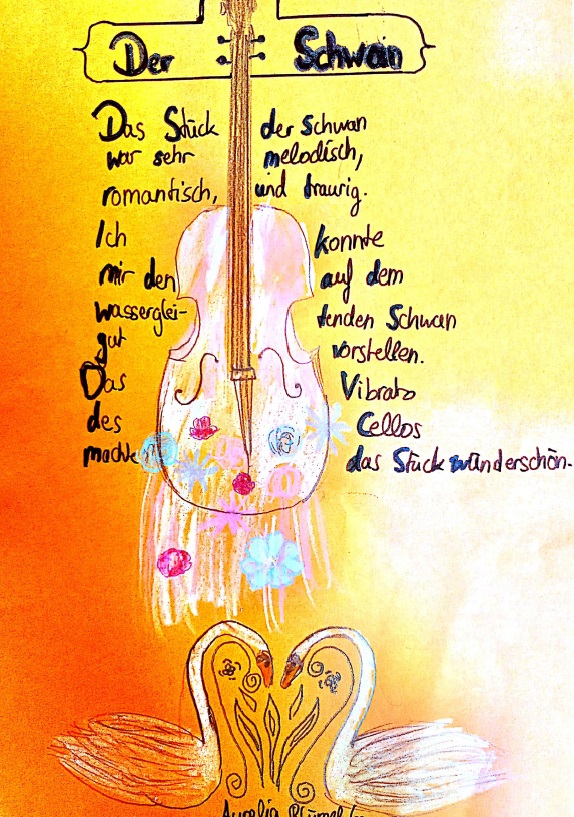 Der Schwan
Das Stück der Schwan
war sehr melodisch,
romantisch, und traurig.
Ich konnte
mir den auf dem
wasserglei- tenden Schwan
gut vorstellen.
Das Vibrato
des Cellos
machte das Stück wünderschön.
Aurelia